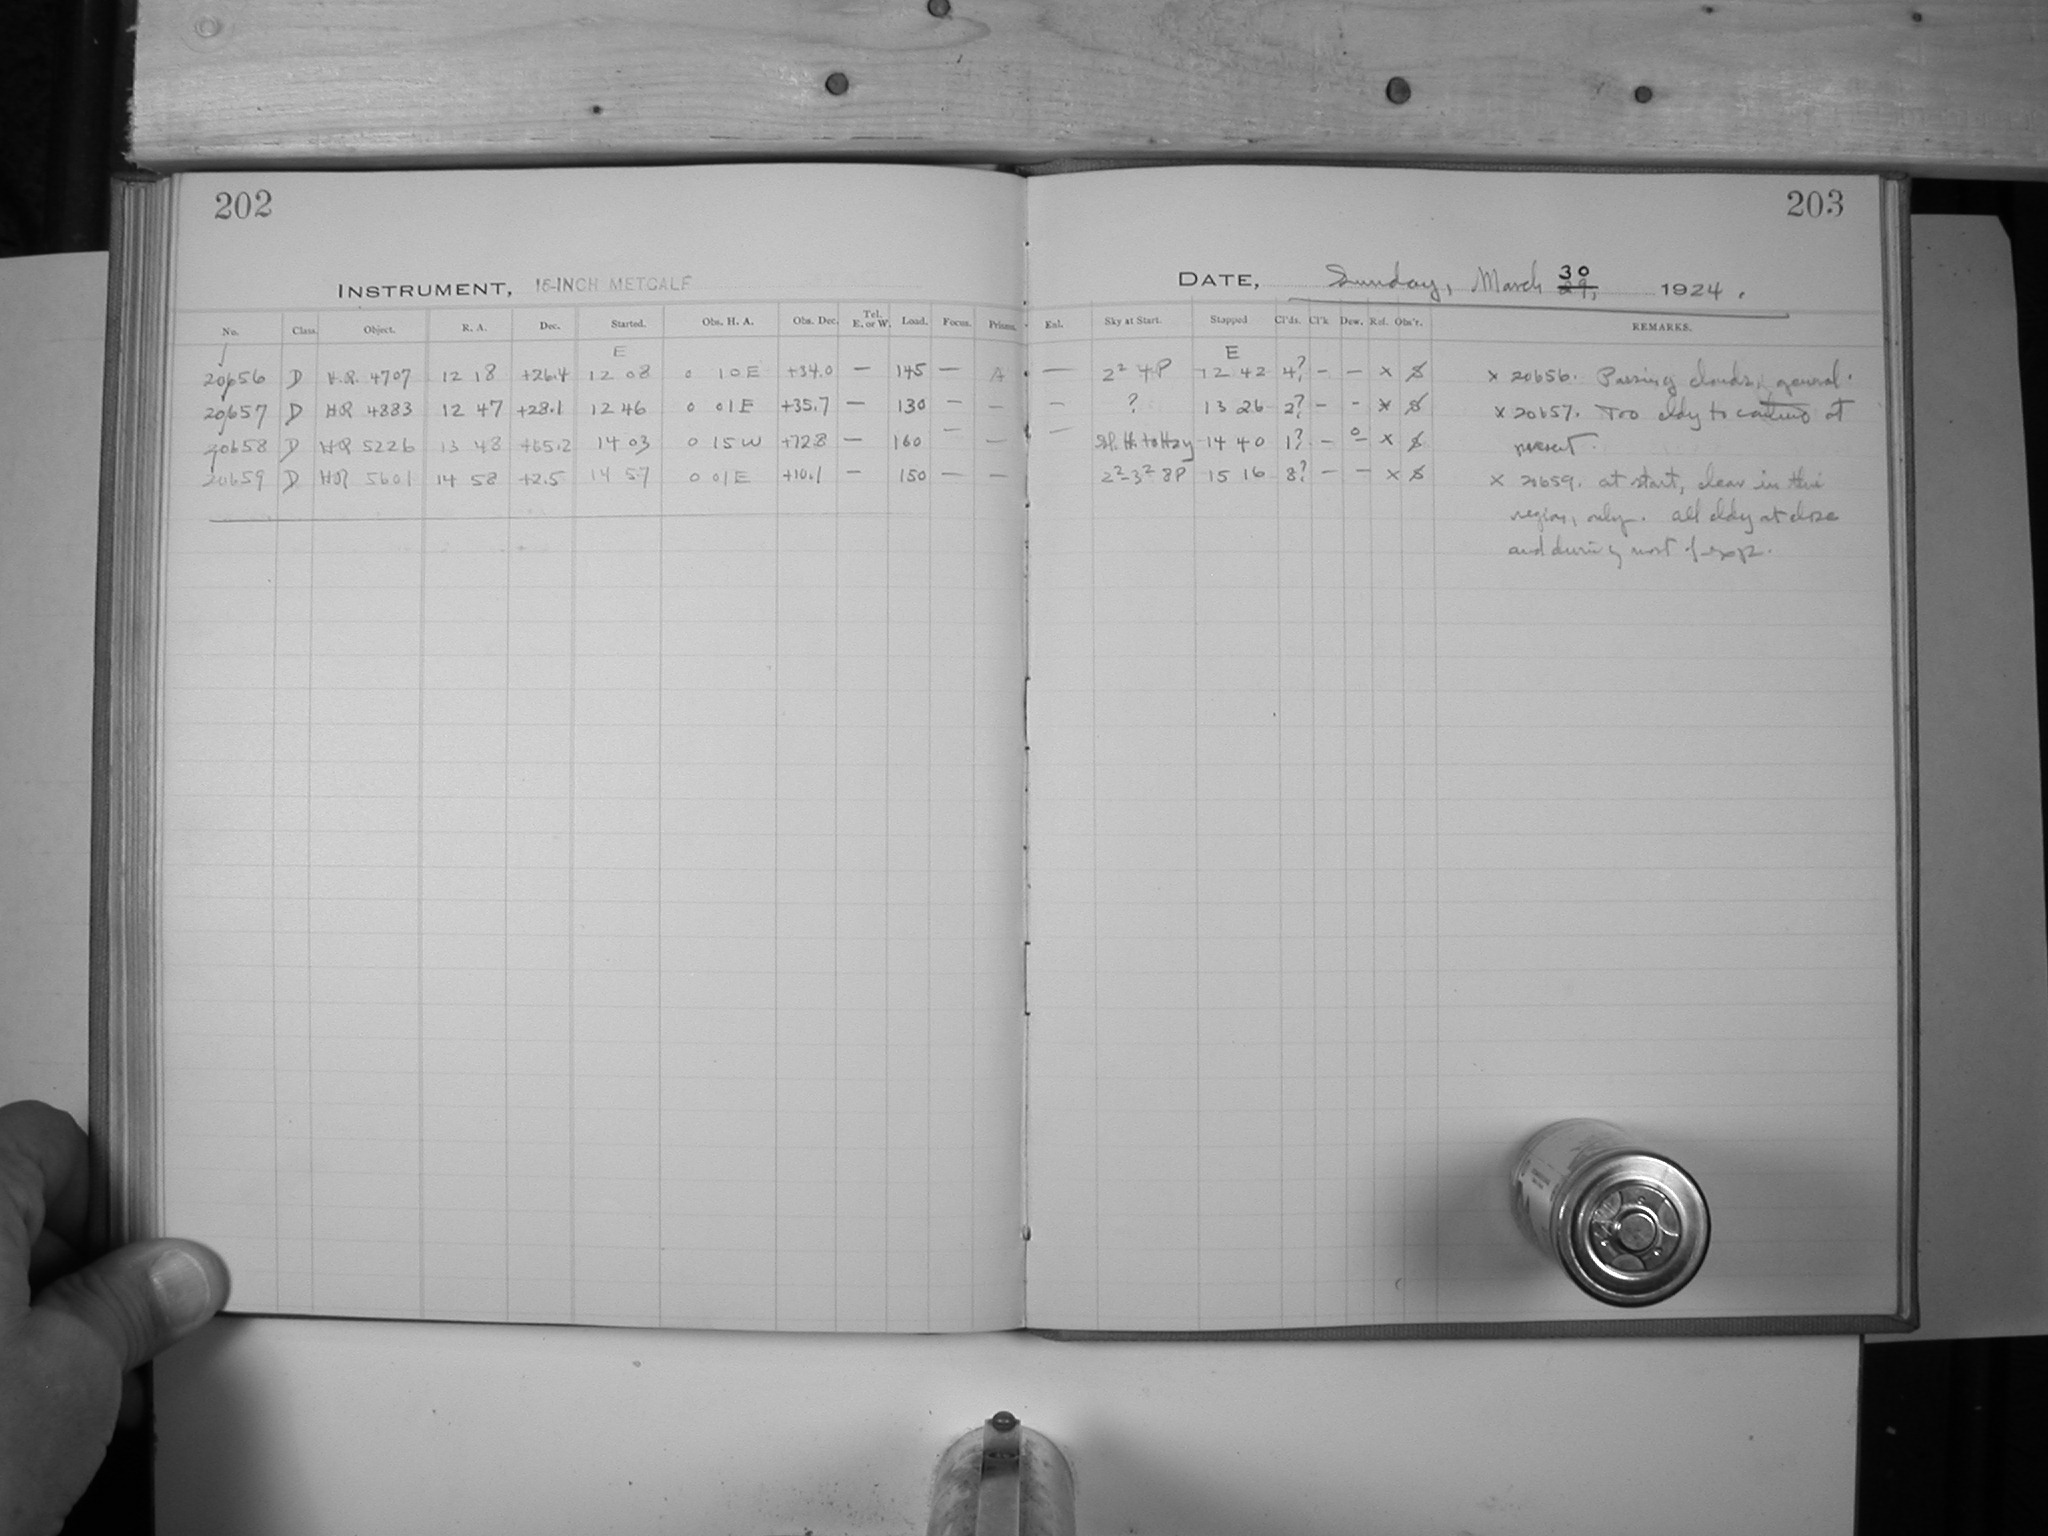 202
203
INSTRUMENT, 16-INCH METCALF
DATE, Sunday, March 30 29, 1924.
No. Class. Object. R. A. Dec. Started. Obs. H. A. Obs. Dec. Tel. E. or W. Load. Focus. Prisms. Enl. Sky at Start. Stopped Cl'ds. Cl'k Dew. Ref. Obs'r. REMARKS.
E E
20656 D H.R. 4707 12 18 +26.4 12 08 0 10 E +34.0 — 145 — A — 2² 4P 12 42 4? – – x x 20656. Passing clouds, general.
20657 D HR 4883 12 47 +28.1 12 46 0 01 E +35.7 — 130 — — — ? 13 26 2? – – x x 20657. Too cldy to continue at
20658 D HR 5226 13 48 +65.2 14 03 0 15 W +72.8 — 160 — — — Sl. H. to Hzy 14 40 1? – 0 – x present.
20659 D HR 5601 14 58 +2.5 14 57 0 01 E +10.1 — 150 — — 2²-3² 8P 15 16 8? – – x x 20659. at start, clear in this
region, only. All cldy at close
and during most of exp.